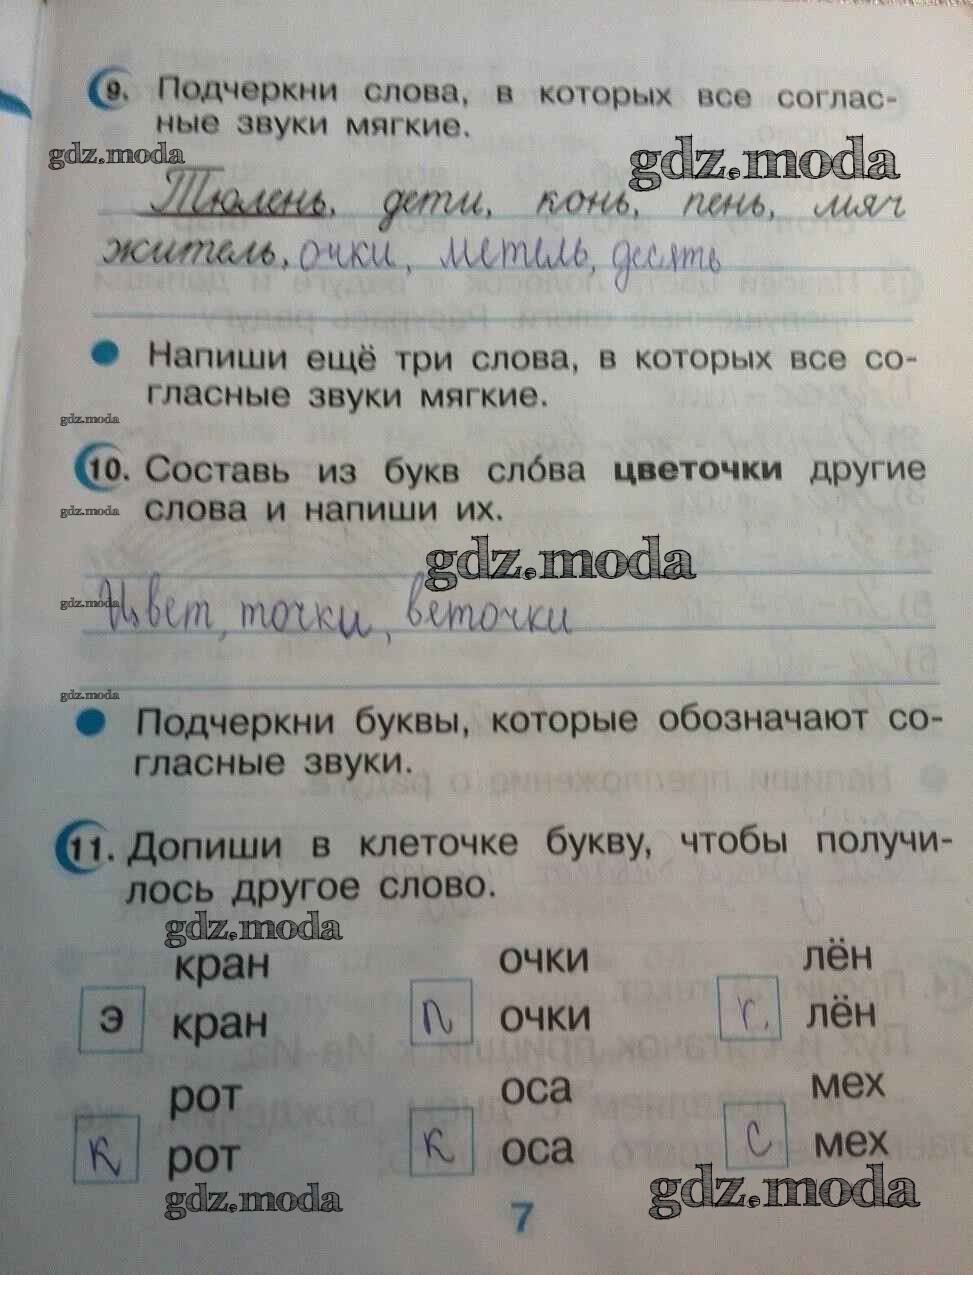 9. Подчеркни слова, в которых все соглас-
ные звуки мягкие.
gdz.moda
gdz.moda
Тюлень, дети, конь, пень, мяч
житель, очки, метель, десять
Напиши ещё три слова, в которых все со-
гласные звуки мягкие.
gdz.moda
10. Составь из букв сло́ва цветочки другие
слова и напиши их.
gdz.moda
gdz.moda
gdz.moda
Цвет, точки, веточки
gdz.moda
Подчеркни буквы, которые обозначают со-
гласные звуки.
11. Допиши в клеточке букву, чтобы получи-
лось другое слово.
gdz.moda
кран очки лён
э кран п очки г. лён
рот оса мех
к рот к оса с мех
gdz.moda
gdz.moda
7